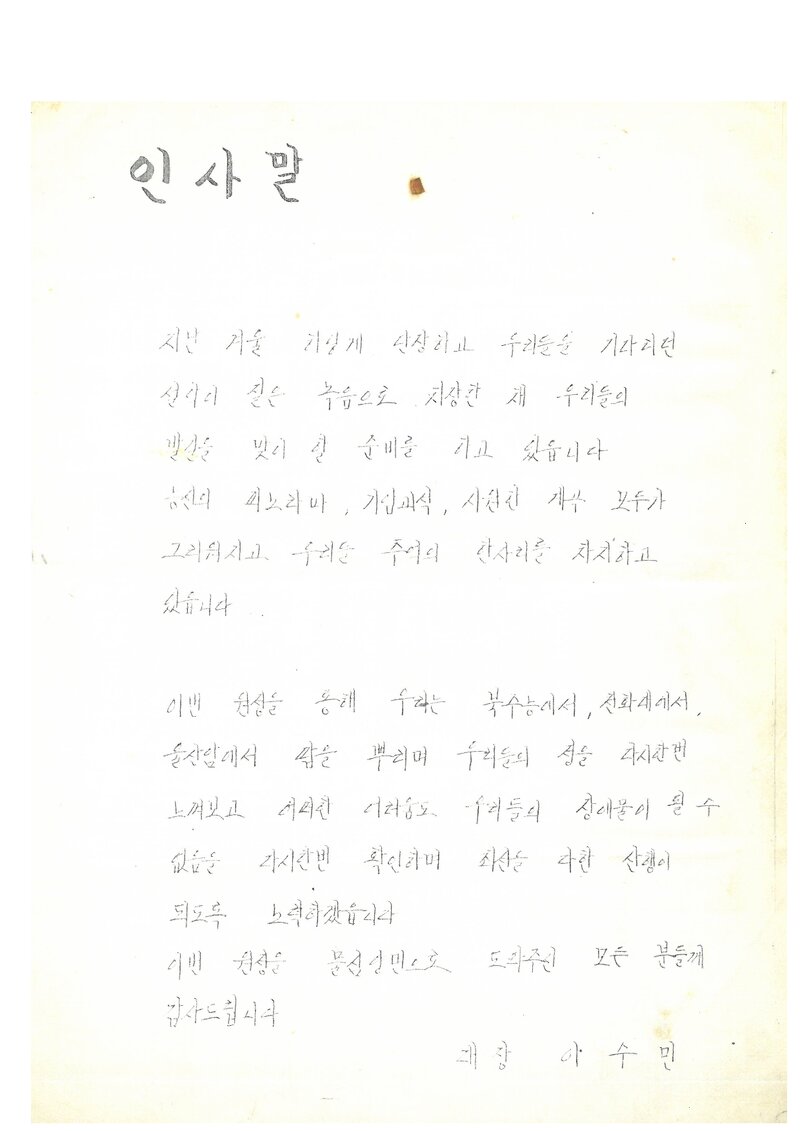 인사말
지난 겨울 하얗게 단장하고 우리들을 기다리던
설악이 짙은 녹음으로 치장한 채 우리들의
발길을 맞이 할 준비를 하고 있읍니다
능선의 파노라마, 기암괴석, 시원한 계곡 모두가
그리워지고 우리는 추억의 한자리를 차지하고
있읍니다
이번 원정을 통해 우리는 북수능에서, 천화대에서,
울산암에서 땀을 뿌리며 우리들의 정을 다시한번
느껴보고 어떠한 어려움도 우리들의 장애물이 될 수
없음을 다시한번 확인하며 최선을 다한 산행이
되도록 노력하겠읍니다
이번 원정을 물심양면으로 도와주신 모든 분들께
감사드립니다
대장 이수민